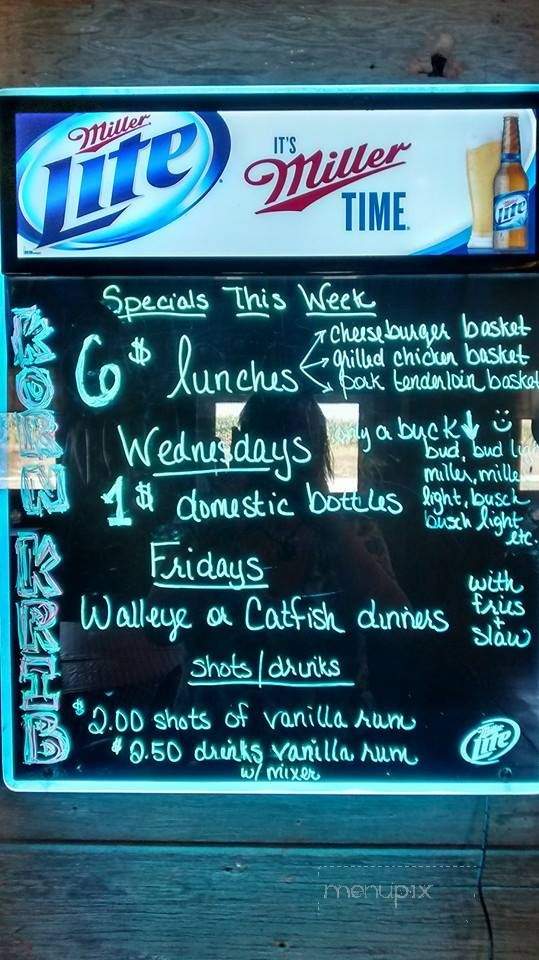 Miller
Lite
IT'S
Miller
TIME
Lite
KORN KRIB
Specials This Week
6$ lunches
cheeseburger basket
grilled chicken basket
pork tenderloin basket
Wednesdays
1$ domestic bottles
a buck
bud, bud
miller,
light, busch
busch light
etc.
Fridays
Walleye or Catfish dinners
with
fries
+
slaw
shots/drinks
$2.00 shots of vanilla rum
$2.50 drinks vanilla rum
w/ mixer
Lite
menupix